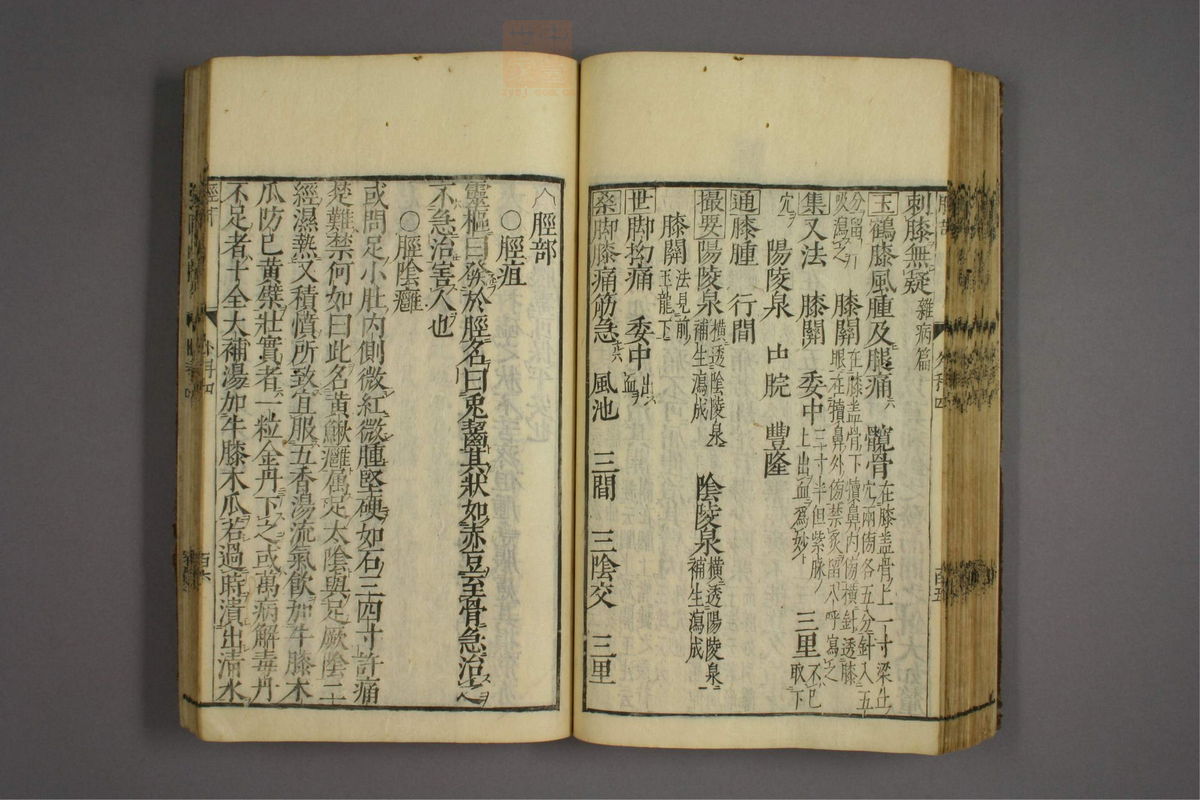 刺膝無疑雜病篇
玉鶴膝風腫及腿痛 髖骨在膝盖骨上一寸梁丘穴兩傍各五分針入五
分留 膝關在膝盖骨下犢鼻內傍橫針透膝眼在犢鼻外傍禁灸留八呼瀉之
集又法 膝關 委中三寸半但紫脉上出血為妙 三里不已取下
穴 陽陵泉 中脘 豐隆
通膝腫 行間
撮要陽陵泉橫透陰陵泉補生瀉成 陰陵泉橫透陽陵泉補生瀉成
膝關法見前玉龍下
世脚拘痛 委中出血
桒脚膝痛筋急 風池 三間 三陰交 三里
脛部
○脛疽
靈樞曰發於脛名曰兎齧其狀如赤豆至骨急治之
不急治害人也
○脛陰癰
或問足小肚內側微紅微腫堅硬如石三四寸許痛
楚難禁何如曰此名黃鰍癰属足太陰與足厥陰二
經濕熱又積憤所致宜服五香湯流氣飲加牛膝木
瓜防已黃蘗壯實者一粒金丹下之或萬病解毒丹
不足者十全大補湯加牛膝木瓜若過時潰出清水
外科四
百六